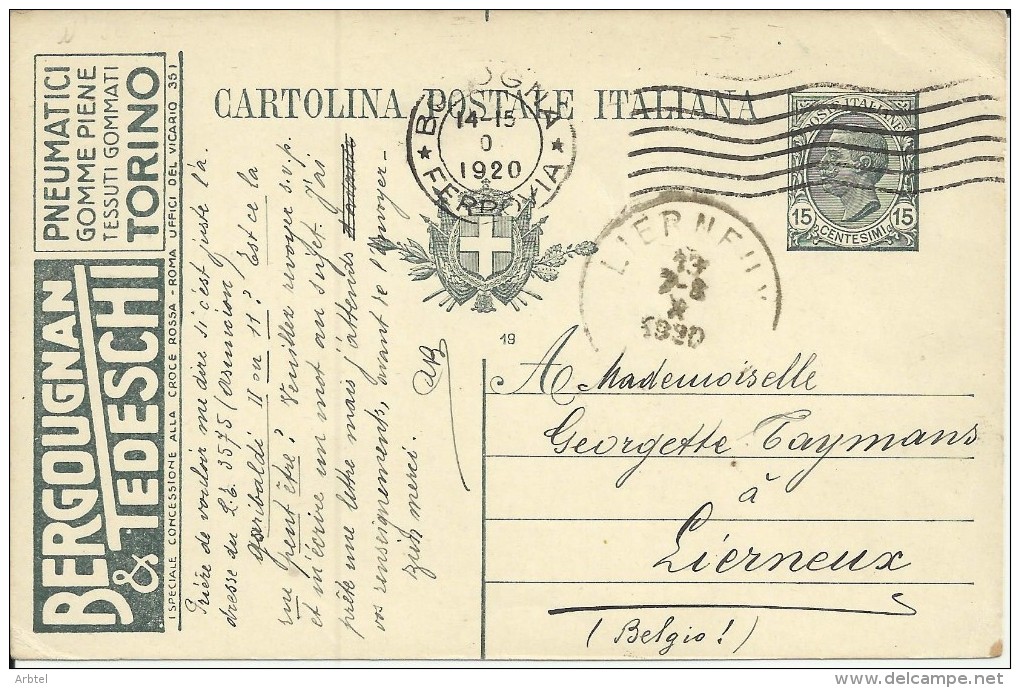 PNEUMATICI
GOMME PIENE
TESSUTI GOMMATI
TORINO
BERGOUGNAN
& TEDESCHI
(SPECIALE CONCESSIONE ALLA CROCE ROSSA - ROMA UFFICI DEL VICARIO 35)
Prière de vouloir me dire si c'est juste l'a.
dresse du L.b. 3575 (asunsion)
garibaldi II ou 11? Est ce la
rue peut être? Veuillez revoyer s.v.p.
et m'écrire un mot au sujet. J'ai
prête une lettre mais j'attends
vos renseignements, avant de l'envoyer-
zuh merci.
CARTOLINA POSTALE ITALIANA
BOLOGNA
14-15
1920
FERROVIA
POSTE ITALIANE
15 15
CENTESIMI
LIERNEUX
13
7-8
X
1920
19
A Mademoiselle
Georgette Taymans
à
Lierneux
(Belgio!)
Arbtel
delcampe.net